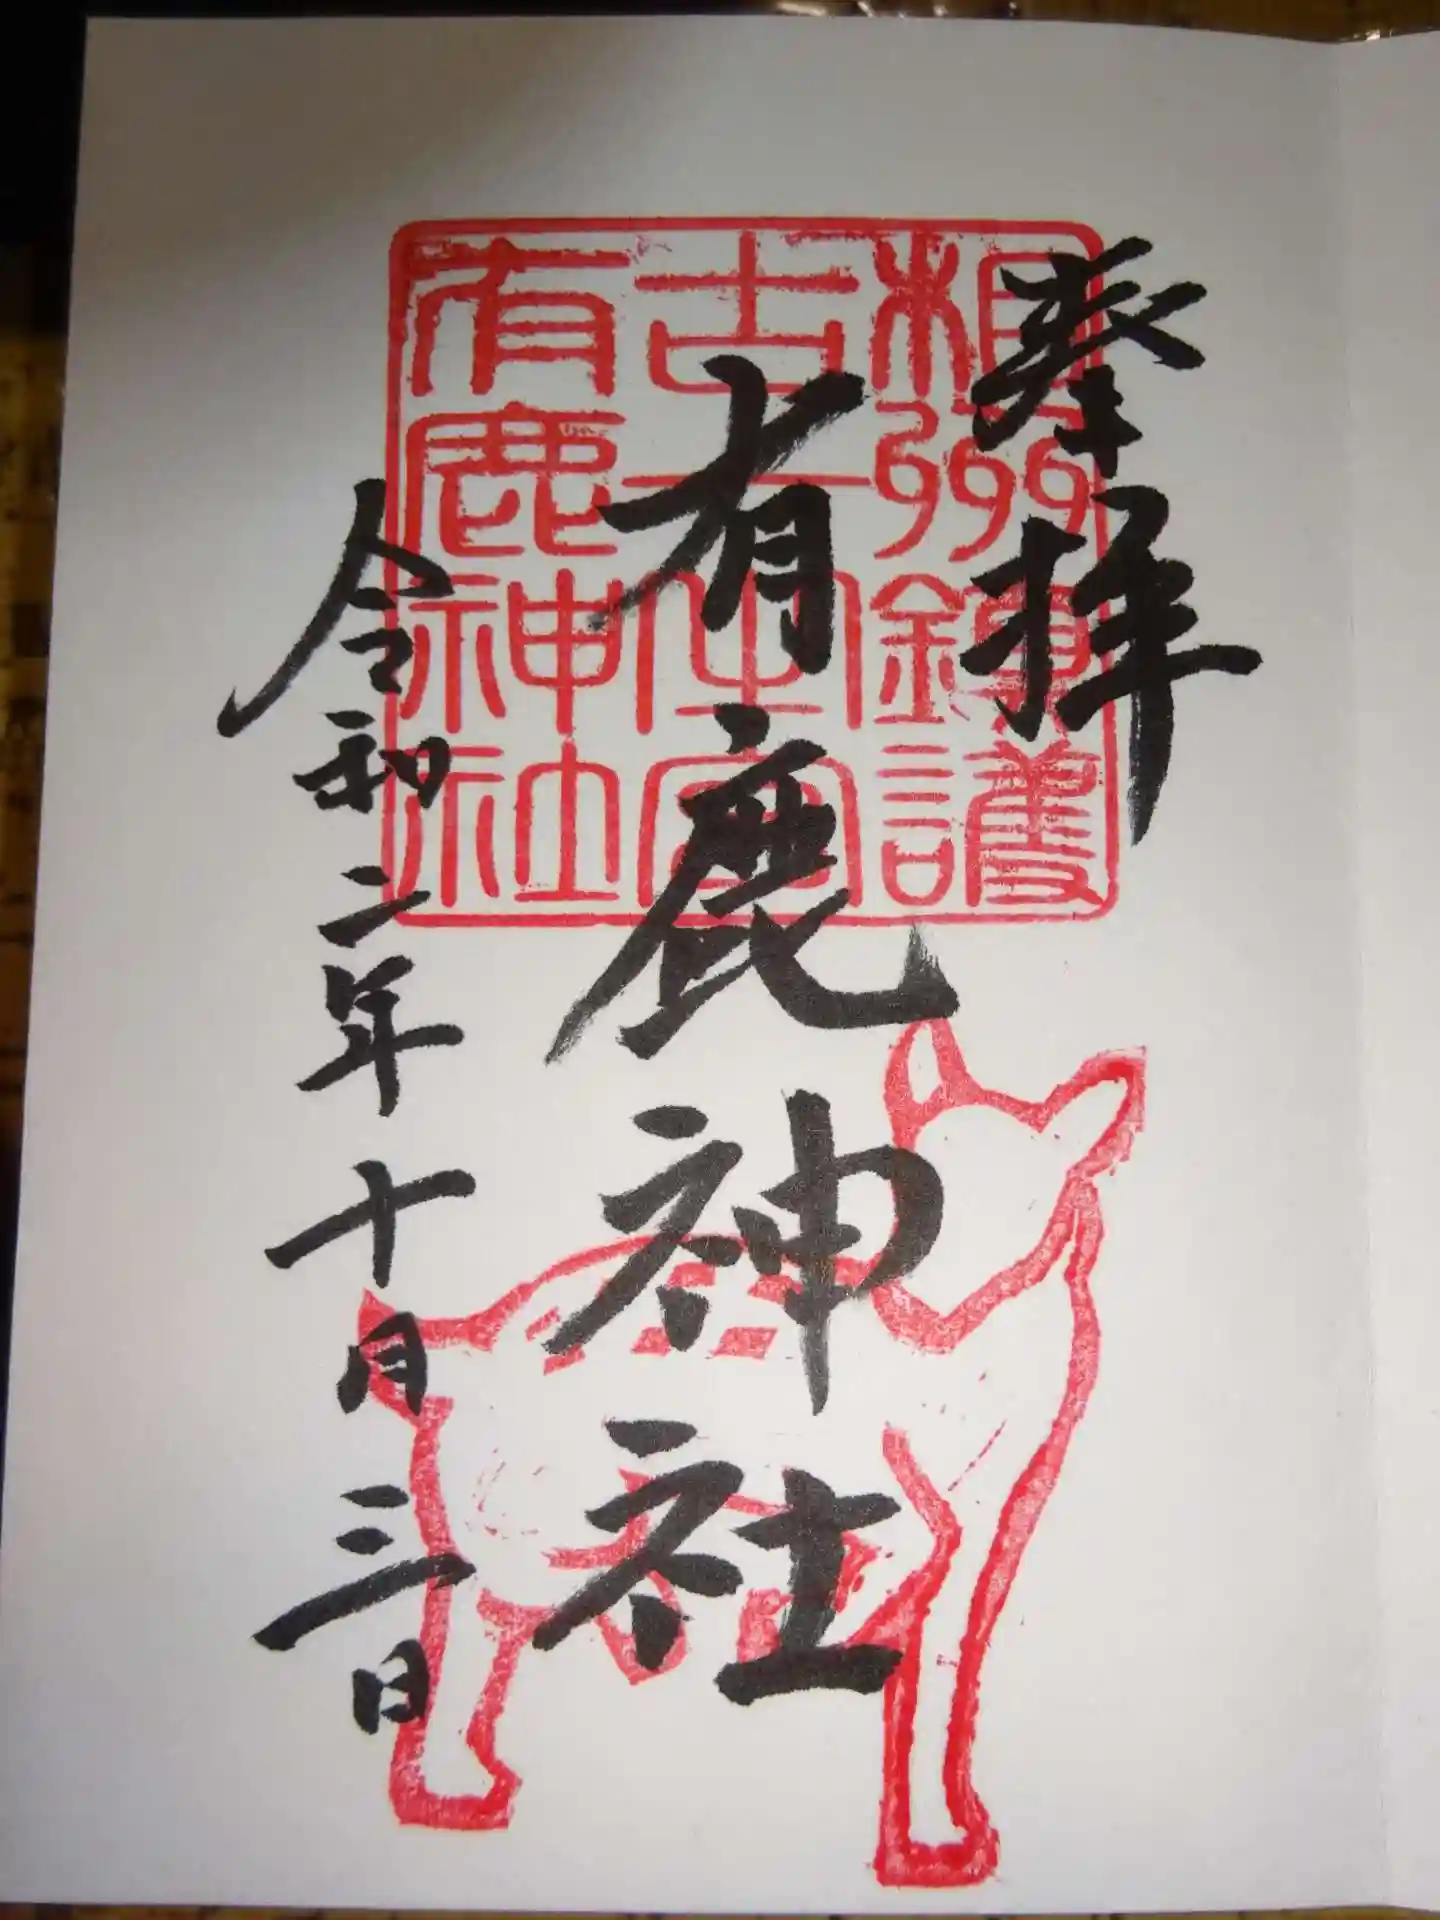 奉拝
有鹿神社
令和二年十月三日
相州鎮護
古一之宮
有鹿神社